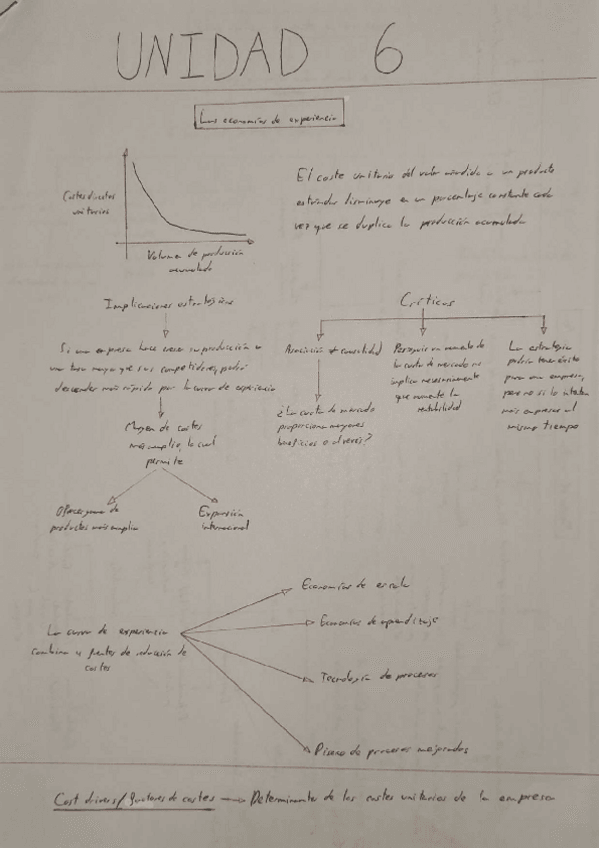 UNIDAD 6
Las economías de experiencia
Costes directos
unitarios
Volumen de producción
acumulado
El coste unitario del valor añadido a un producto
estándar disminuye en un porcentaje constante cada
vez que se duplica la producción acumulada
Implicaciones estratégicas
Si una empresa hace crecer su producción a
una tasa mayor que sus competidores, podrá
descender más rápido por la curva de experiencia
Margen de costes
más amplio, lo cual
permite
Ofrecer gama de
productos más amplia
Expansión
internacional
Críticas
Asociación ≠ causalidad
¿La cuota de mercado
proporciona mayores
beneficios o al revés?
Perseguir un aumento de
la cuota de mercado no
implica necesariamente
que aumente la
rentabilidad
La estrategia
podría tener éxito
para una empresa,
pero no si lo intentan
más empresas al
mismo tiempo
La curva de experiencia
combina 4 fuentes de reducción de
costes
Economías de escala
Economías de aprendizaje
Tecnología de procesos
Diseño de procesos mejorados
Cost drivers/ generadores de costes → Determinantes de los costes unitarios de la empresa